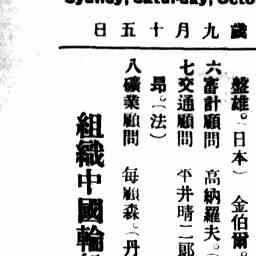 Sydney, Saturday, Octo
歲九月十五日
盤雄。(日本) 金伯爾。
六審計顧問 高納羅夫。(
七交通顧問 平井晴二郎
昂。(法)
八礦業顧問 毎顧森。(丹
組織中國輪